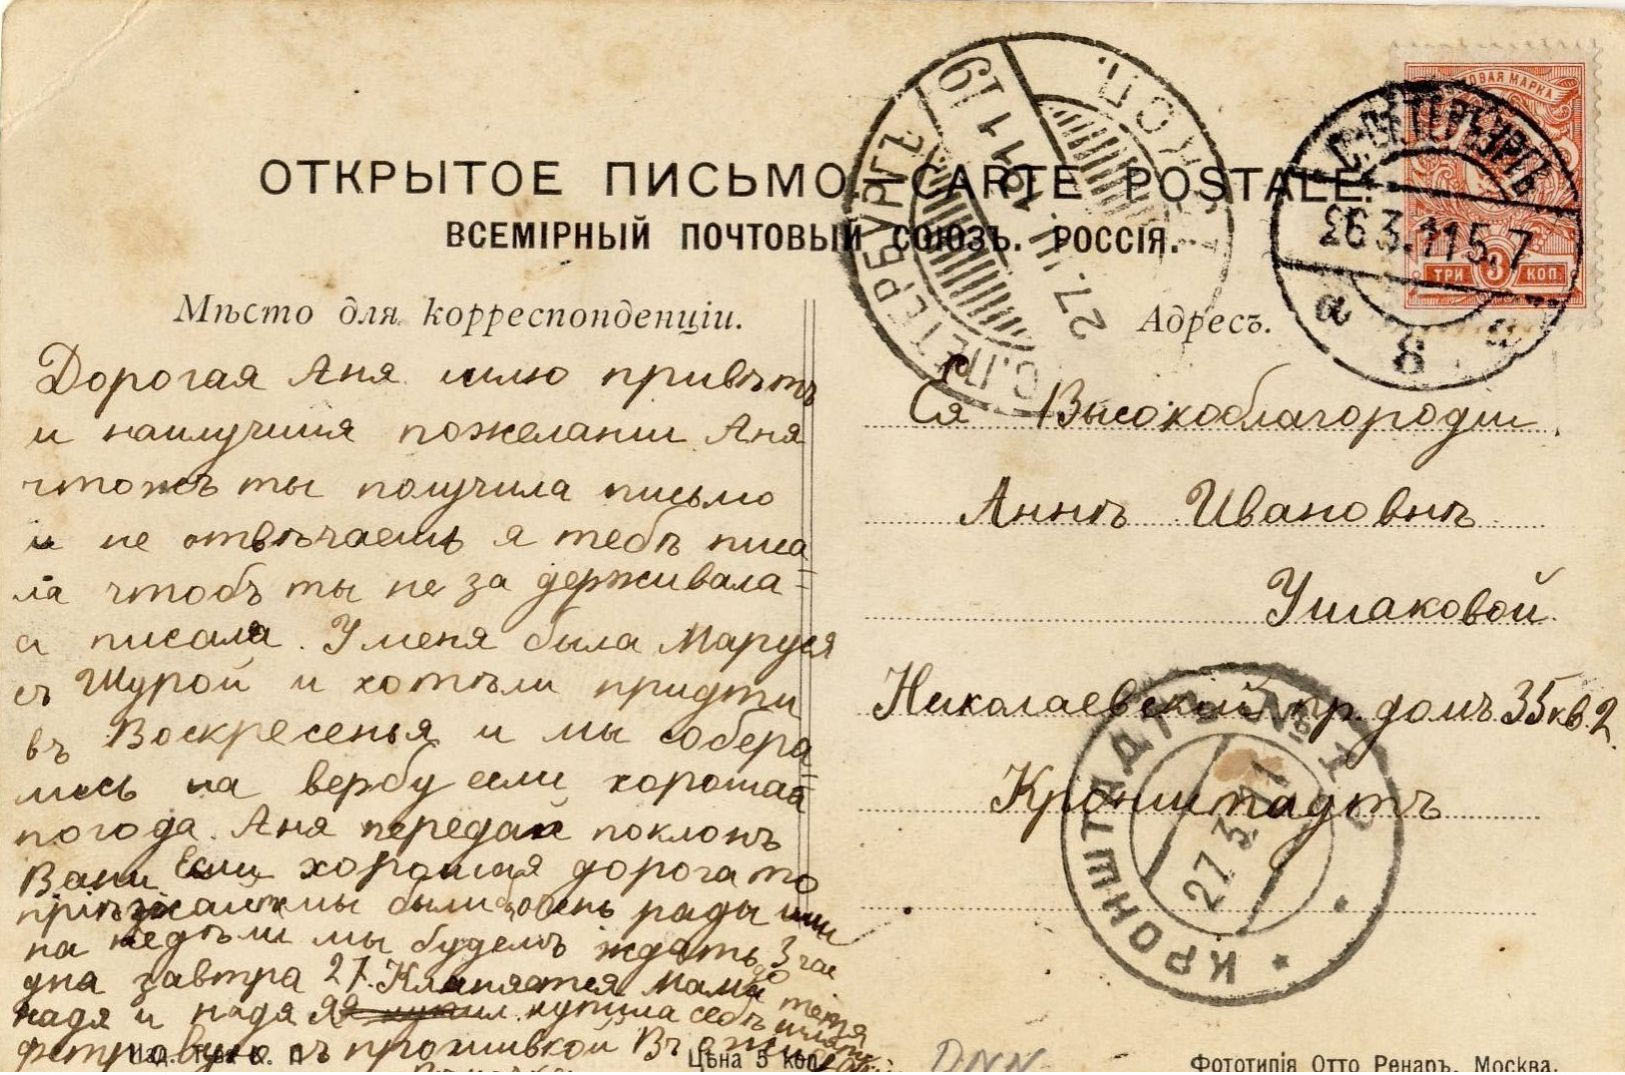 ОТКРЫТОЕ ПИСЬМО. CARTE POSTALE.
ВСЕМІРНЫЙ ПОЧТОВЫЙ СОЮЗЪ. РОССІЯ.
Мѣсто для корреспонденціи.
Дорогая Аня шлю привѣтъ
и наилучшия пожелании Аня
чтожъ ты получила письмо
и не отвѣчаешь я тебѣ писа
ла чтобъ ты не за держивала-
а писала. У меня была Маруся
съ Шурой и хотѣли придти
въ Воскресенья и мы собера
лись на вербу если хорошая
погода. Аня передай поклонъ
Вани Если хорошая дорога то
приѣзжай мы были бы очень рады или
на недѣли мы будемъ ждать до 3 час
дна завтра 27. Кланяется мама тетя
надя и надя купила себѣ
съ прошивкой
Адресъ.
Ея Высокоблагородии
Аннѣ Ивановнѣ
Ушаковой
Николаевский пр. домъ 35 кв. 2.
Кронштадтъ
С.ПЕТЕРБУРГЪ
26.3.11 5.7
а 8 а
ТРИ 3 КОП.
С.ПЕТЕРБУРГЪ
27.III.1911
КРОНШТАДТЪ
27.3.11
Цѣна 5 коп.
DNN
Фототипія Отто Ренаръ. Москва.